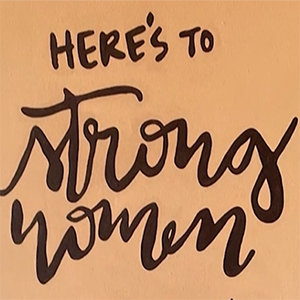 HERE'S TO
strong
women